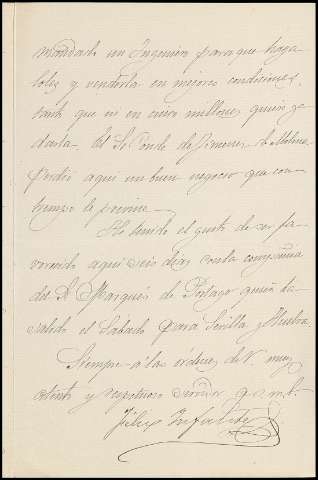 mandado un Ingeniero para que haga
 y venderla en mejores condiciones,
tanto que ni en cinco millones quiere ya
darla. El Sr Conde de Jimenez de Molina
perdió aquí un buen negocio que con
tiempo le previne.—
He tenido el gusto de ser fa-
vorecido aquí seis dias con la compañia
del Sr Marqués de Portago quien ha
salido el Sabado para Sevilla y Huelva.
Siempre á las órdenes de V. muy
atento y respetuoso servidor q. s. m. b.
Felix